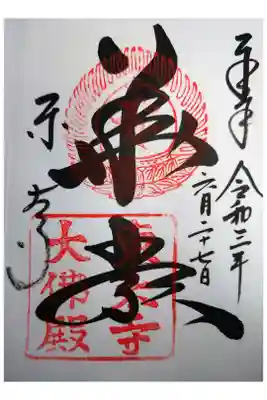 奉拝
令和三年
六月二十七日
華嚴
東大寺
東大寺
大佛殿